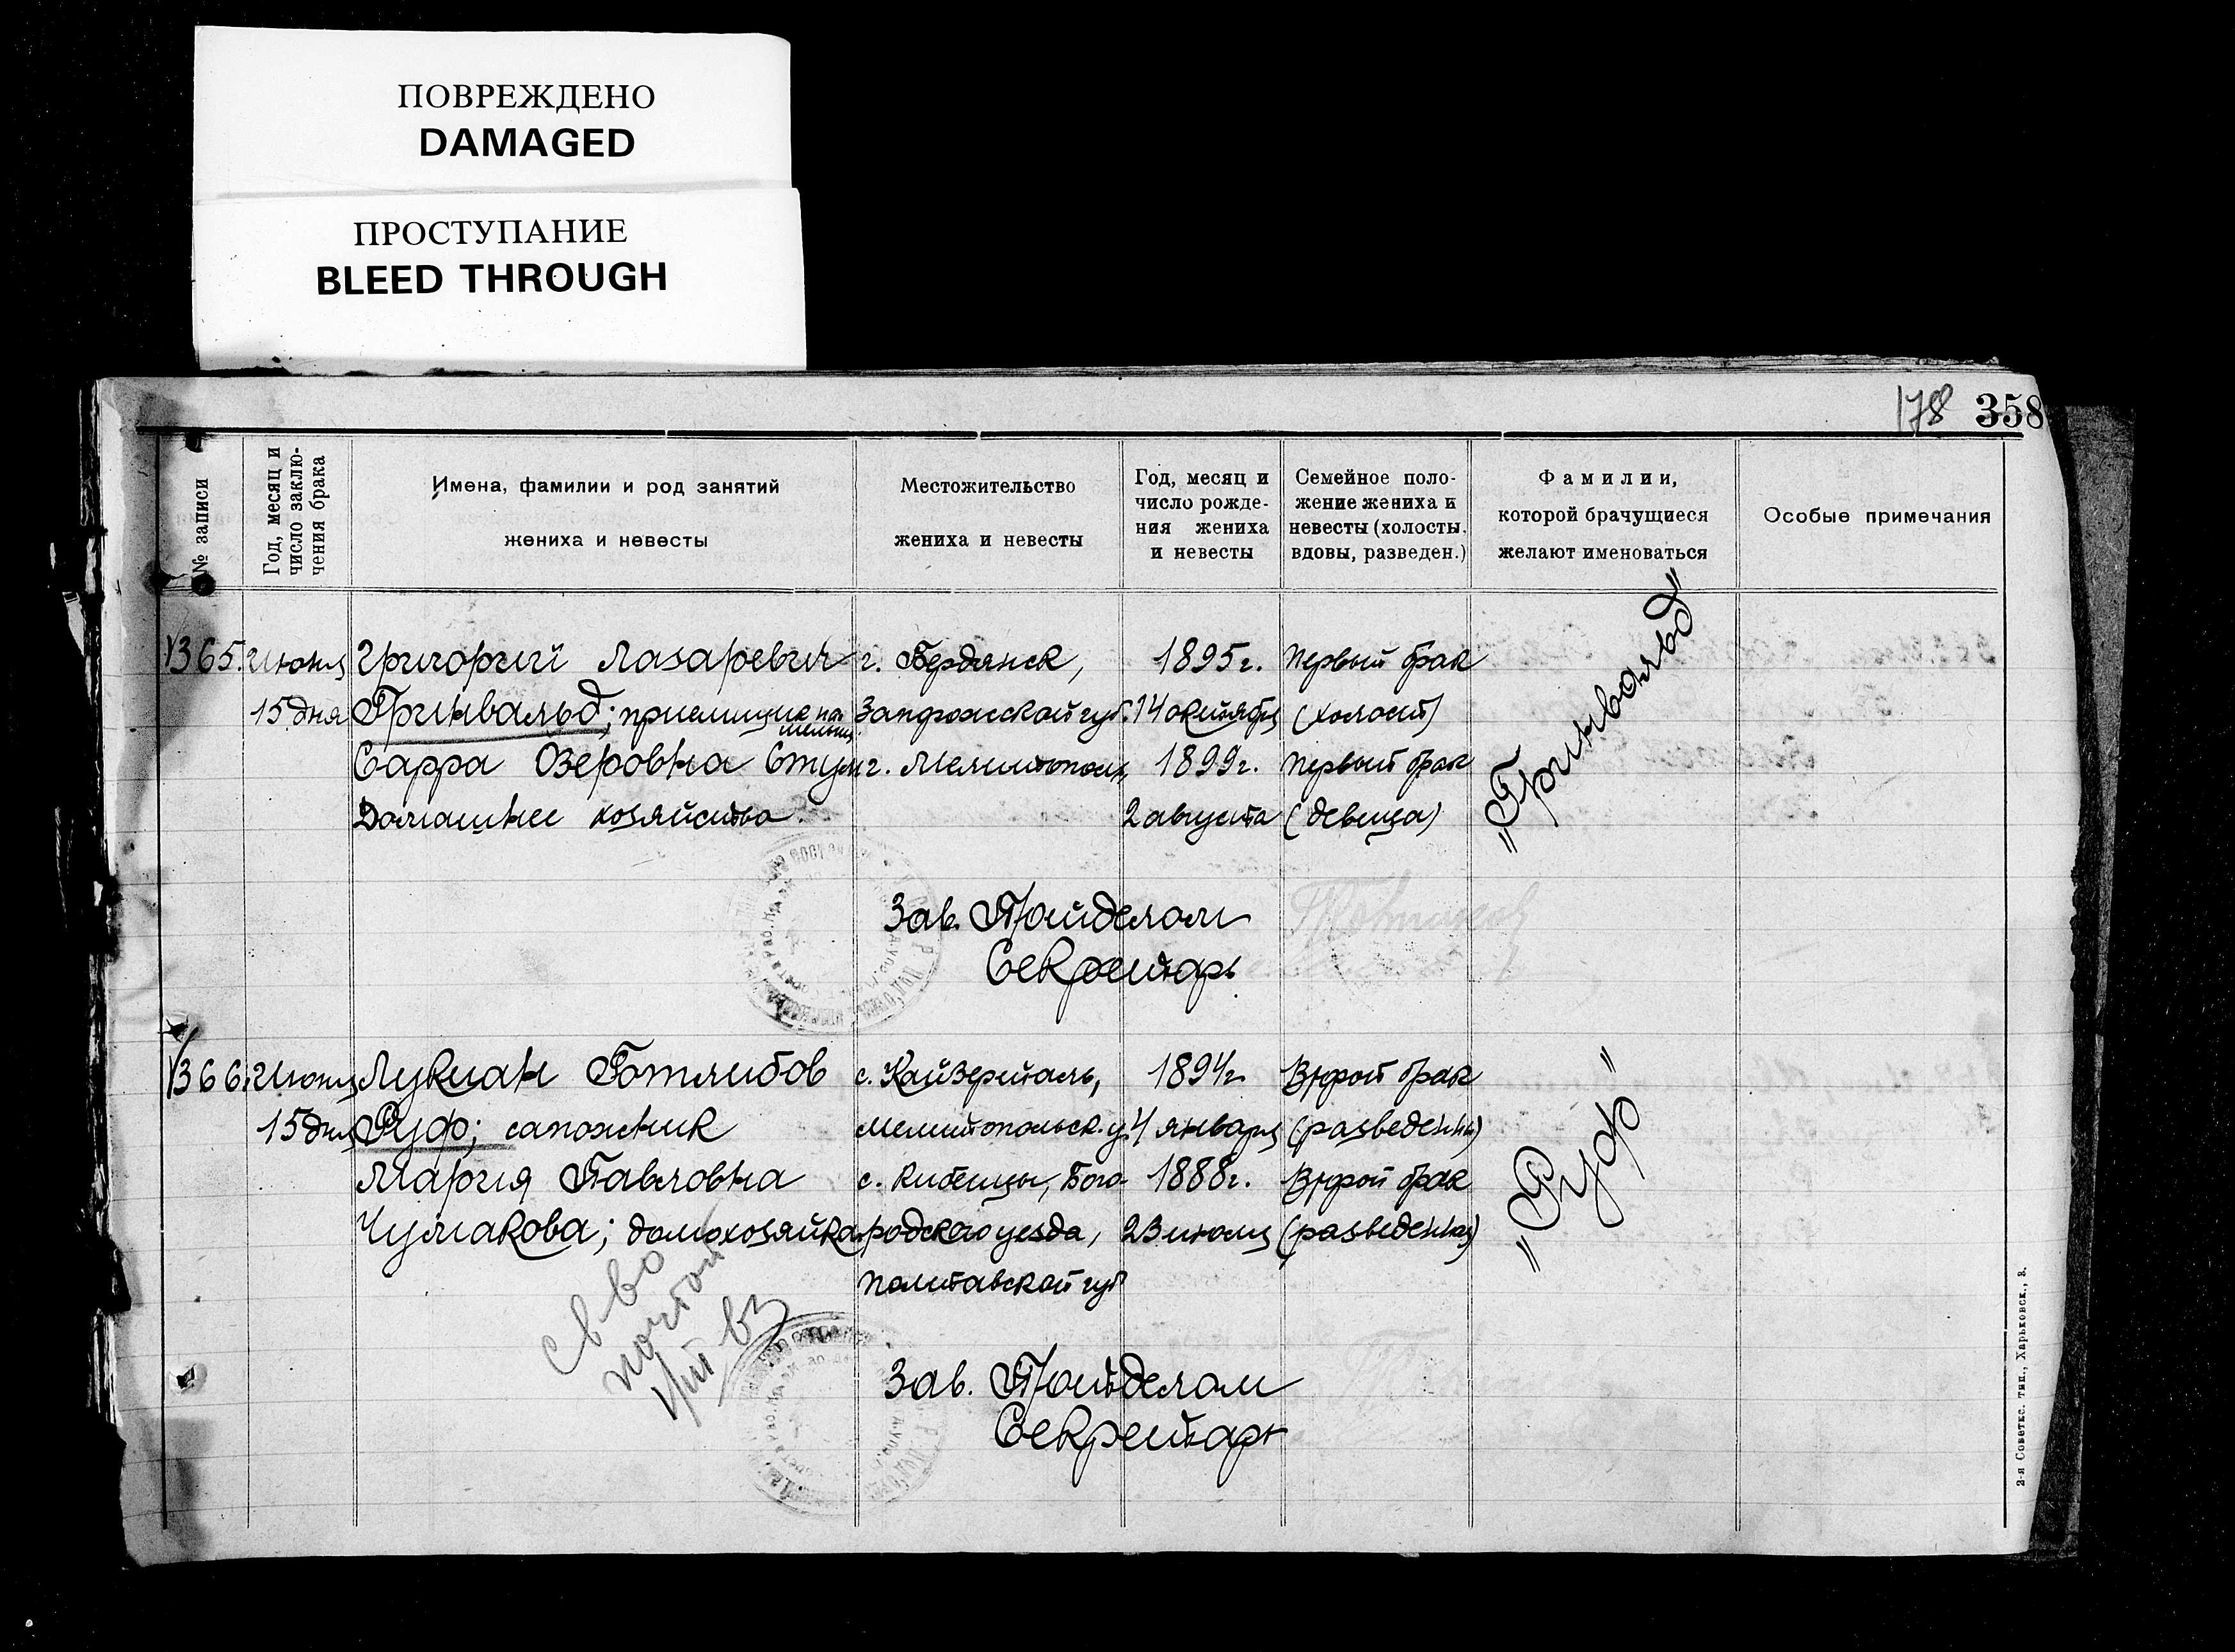 ПОВРЕЖДЕНО
DAMAGED
ПРОСТУПАНИЕ
BLEED THROUGH
178 358
№ записи
Год, месяц и число заклю-
чения брака
Имена, фамилии и род занятий
жениха и невесты
Местожительство
жениха и невесты
Год, месяц и
число рожде-
ния жениха
и невесты
Семейное поло-
жение жениха и
невесты (холосты,
вдовы, разведен.)
Фамилии,
которой брачущиеся
желают именоваться
Особые примечания
365. Июня Григорий Лазаревич г. Бердянск, 1895 г. Первый брак
15 дня Гринвальд; приемщик на мельниц. Запорожской губ. 14 октября (холост)
Сарра Озеровна г. Мелитополь, 1899 г. Первый брак
Домашнее хозяйство. 2 августа (девица)
„Гринвальд"
Зав. Подотделом
Секретарь
366. Июня Лукиан Готлибов с. Кайзерталь, 1894 г. Второй брак
15 дня Руф; сапожник Мелитопольск. у. 4 января (разведенн)
Мария Павловна с. Кибенцы, Бого- 1888 г. Второй брак
Чумакова; домохозяйка. родского уезда, 23 июля (разведенная)
Полтавской губ
„Руф"
св во
почтой
Зав. Подотделом
Секретарь
2-я Советск. тип., Харьковск., 3.